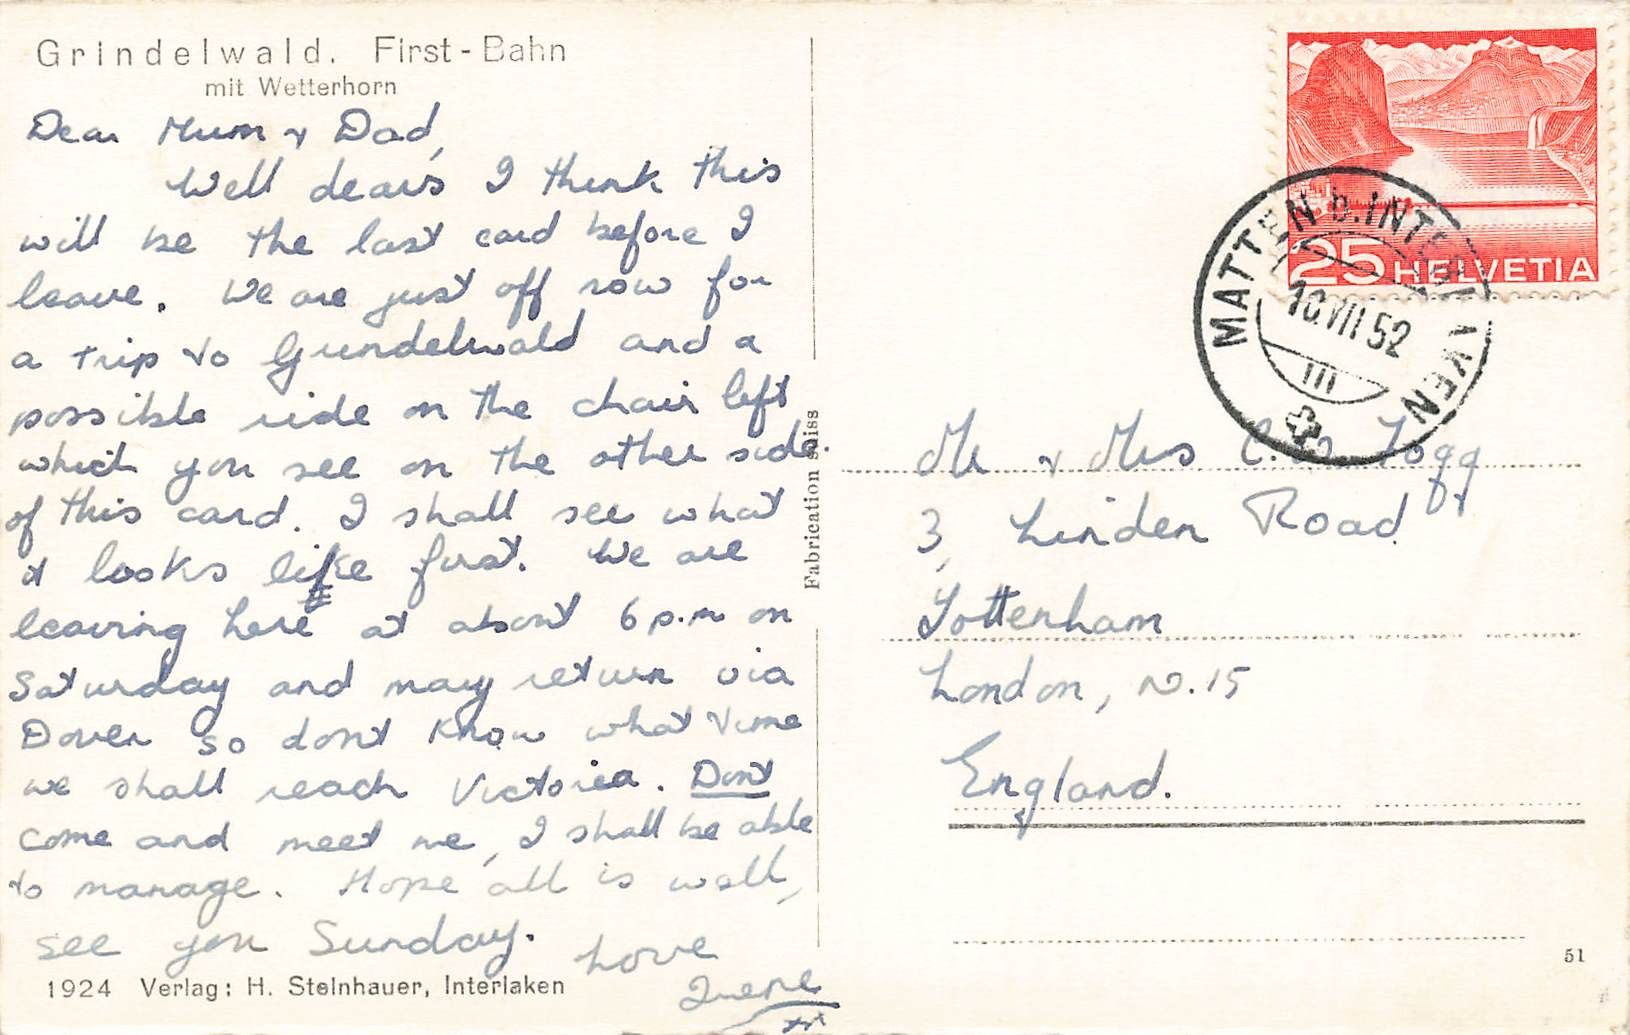 Grindelwald. First-Bahn
mit Wetterhorn
Dear Mum & Dad,
Well dears I think this
will be the last card before I
leave. We are just off now for
a trip to Grundelwald and a
possible ride on the chair left
which you see on the other side.
of this card. I shall see what
it looks like first. We are
leaving here at about 6 p.m on
Saturday and may return via
Dover so dont know what time
we shall reach Victoria. Dont
come and meet me, I shall be able
to manage. Hope all is well,
see you Sunday.
Love
Irene
1924 Verlag: H. Steinhauer, Interlaken
Fabrication suiss
25 HELVETIA
MATTEN b. INTERLAKEN
10 VII 52
III
Mr & Mrs Fogg
3, Linden Road
Tottenham
London, N.15
England.
51